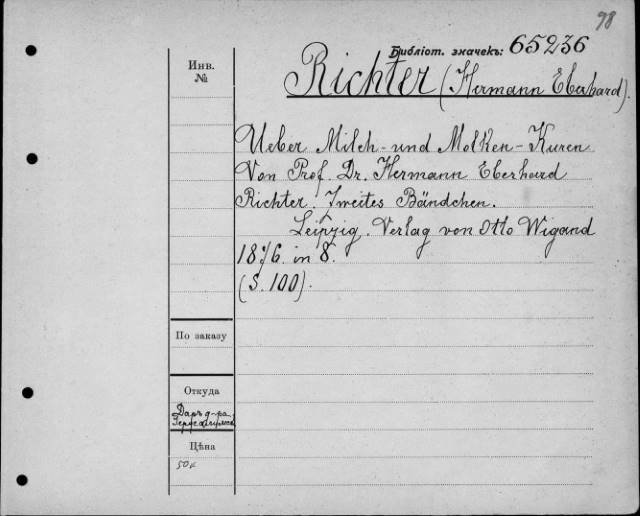 98
Библіот. значекъ: 65236
Инв.
№
Richter (Hermann Eberhard).
Ueber Milch- und Molken-Kuren
Von Prof. Dr. Hermann Eberhard
Richter. Zweites Bändchen.
Leipzig. Verlag von Otto Wigand
18 6. in 8.
(S. 100).
По заказу
Откуда
Даръ д-ра
Цѣна
50 к